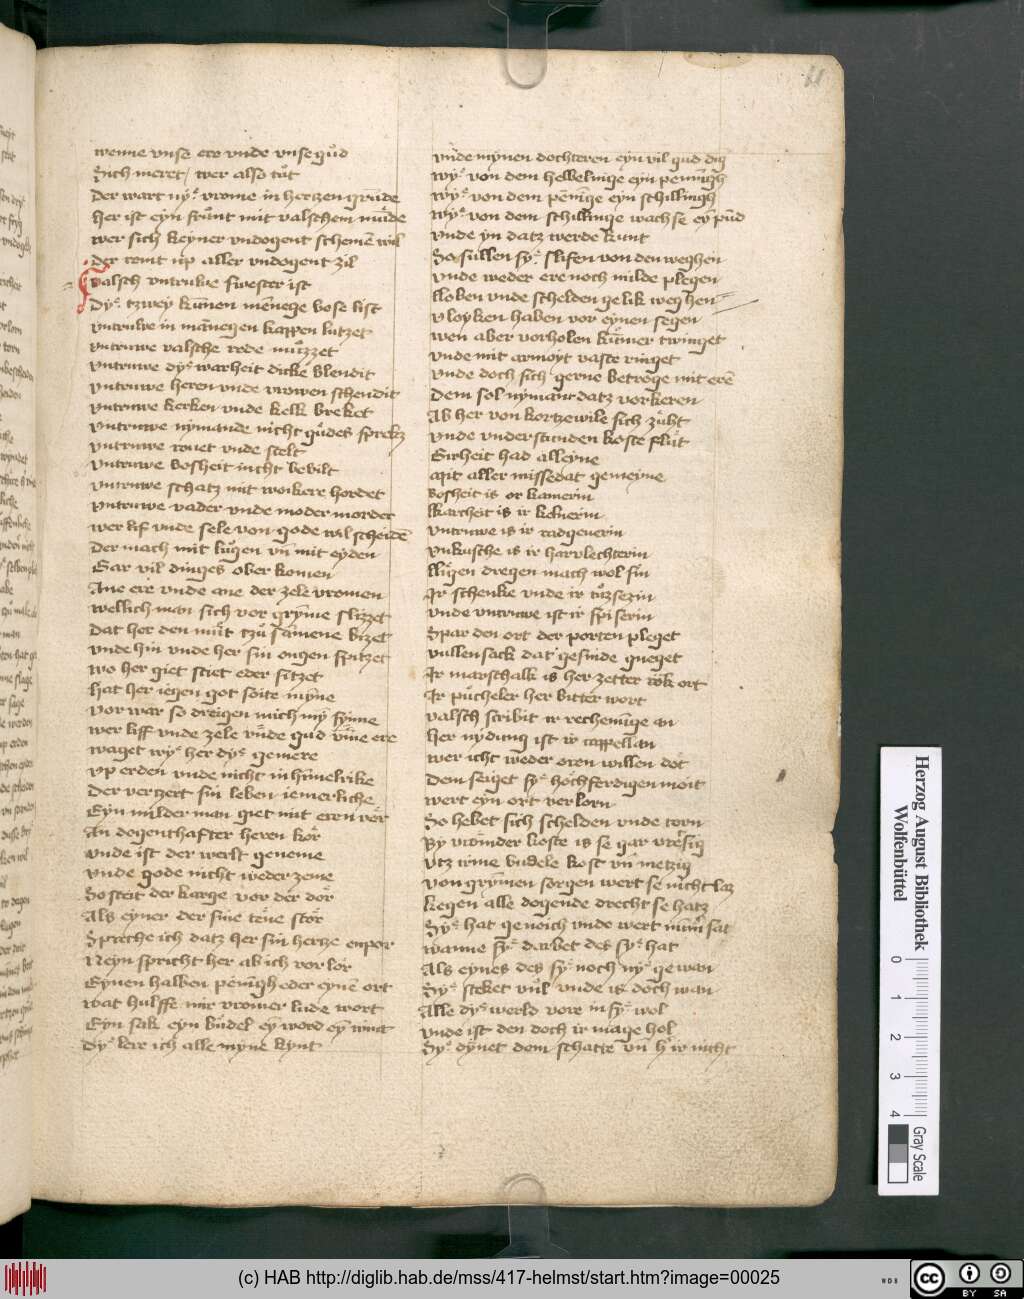 11
wenne vnse ere vnde vnse guͦd
Sich meret / wer also tuͦt
Der wart nyͤ vrome in hertzen grūde
Her ist eyn fruͤnt mit valschem muͤde
wer sich keyner vndogent schemē wil
der remt vp aller vndogent zil
Valsch vntruwe swester ist
Dyͤ tzwey kūnen mēnege bose list
vntruwe in mānegen kappen lutzet
vntruwe valsche rede muͤtzzet
vntruwe dyͤ warheit dicke blendit
vntruwe heren vnde vrowen schendit
vntruwe kerken vnde kelk breket
vntruwe nymande nicht guͦdes sprekz
vntruwe rouet vnde stelt
vntruwe bosheit nicht bevilt
vntruwe schatz mit wokere hordet
vntruwe vader vnde moder mordet
wer lif vnde sele von gode wil scheidē
Der mach mit luͤgen vn̄ mit eyden
Gar vil dinges ober komen
Ane ere vnde ane der zele vromen
wellich man sich ver grȳme flizzet
Dat her den muͤt tzuͦ samene bizet
vnde hin vnde her sin ougen spitzet
wo her giet stiet eder sitzet
hat her iegen got soite mȳne
vor war so dreigen mich mȳ sȳnne
wer liff vnde zele vn̄de guͦd vn̄e ere
waget wyͤ her dyͤ gemere
vp erden vnde nicht in himelrike
Der vertzert sin leben iemerliche
Eyn milder man giet mit eren voͤr
An dogenthafter heren koͤr
vnde ist der werlt geneme
vnde gode nicht weder zeme
So steit der karge vor der doͤr
Als eyner der sine tene stoͤr
Spreche ich datz her sin hertze enpor
Neyn spricht her ab ich vor loͤr
Eynen halben penīgh eder eynē ort
wat hulffe mir vromer lude wort
Eyn sak eyn buͤdel eȳ word eȳ wint
Dyͤ lere ich alle myne kynt
vnde mynen dochteren eyn vil guͦd dig
wyͤ von dem helbelinge eyn pennīgh
wyͤ von dem pēnīge eyn schillingh
wyͤ von dem schillinge wachse eȳ pūd
vnde yn datz werde kunt
So sullen syͤ slifen von den weghen
vnde weder ere noch milde plegen
lloben vnde schelden gelik weghen
vloyken haben vor eynen segen
wen aber vorholen kuͤmer twinget
vnde mit armoyt vaste ringet
vnde doch sich gerne betroge mit erē
Dem sol nymant datz vorkeren
Ab her von kortzewile sich zuͤht
vnde vnderstunden koste fluͤt
Girheit had alleyne
Mit aller missedat gemeyne
Bosheit is or kamerin
Karcheit is ir kelnerin
vntruwe is ir radgeuerin
vnkusche is ir harvlechterin
lligen dregen mach wol sin
Ir schenke vnde ir truzsezin
vnde vntruwe ist ir spiserin
Spar den ort der porten pleget
vullensack dat gesinde queget
Ir marschalk is her zetter rok ort
Ir puͤcheler her bitter wort
valsch scribit ir rechenūge an
her nydung ist ir cappellan
wer icht weder oren willen doͤt
Dem seiget syͤ hochferdigen moit
wert eyn ort verlorn
So hebet sich schelden vnde torn
By vroͤmder koste is se gar vreͤsig
vtz irme budele kost vn̄ metzig
von grȳmen sorgen wert se nicht laz
kegen alle dogende drecht se hatz
Syͤ hat genoich vnde wert nūm̄ sat
wanne syͤ darbet des syͤ hat
Als eynes des syͤ noch nyͤ gewan
Syͤ steket vuͦl vnde is doch wan
Alle dyͤ werld vore in syͤ wol
vnde ist den doch ir mage hol
Syͤ dynet dem schatte vn̄ hͤ ir nicht
Herzog August Bibliothek
Wolfenbüttel
0 1 2 3 4
Gray Scale
(c) HAB http://diglib.hab.de/mss/417-helmst/start.htm?image=00025
WDB
cc BY SA